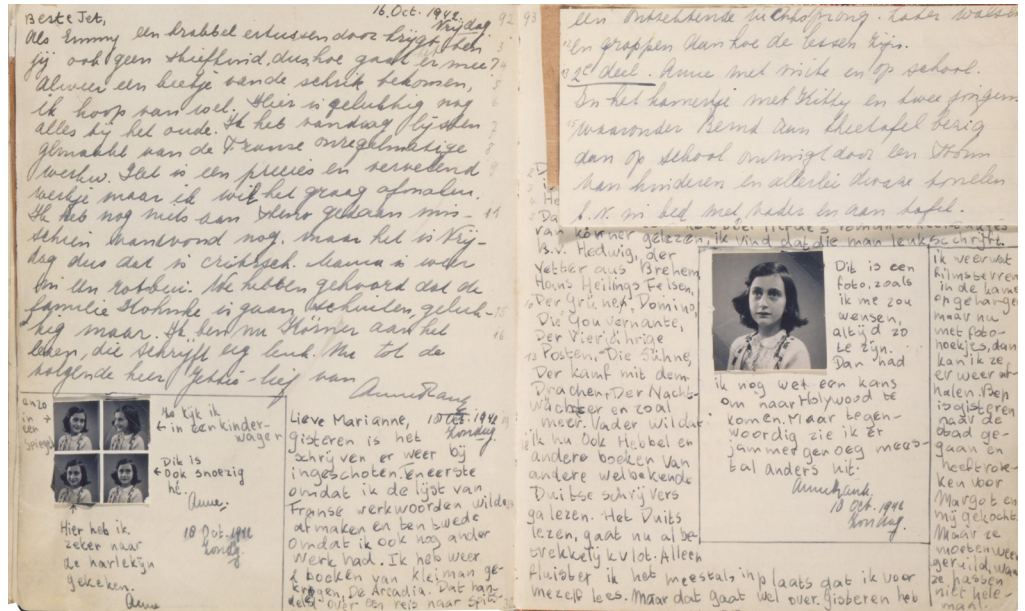 16 Oct. 1942.
Vrijdag
92
Beste Jet,
Als Emmy een krabbel ertussendoor krijgt, ben
jij ook geen stiefkind, dus hoe gaat er mee?
Alweer een beetje van de schrik bekomen,
ik hoop van wel. Hier is gelukkig nog
alles bij het oude. Ik heb vandaag lijsten
gemaakt van de Franse onregelmatige
werkw. Het is een precies en vervelend
werkje maar ik wil het graag afmaken.
Ik heb nog niets aan steno gedaan mis-
schien vanavond nog, maar het is Vrij-
dag dus dat is critisch. Mama is weer
in een robbui. We hebben gehoord dat de
familie is gaan schuilen, geluk-
kig maar. Ik ben nu Körner aan het
lezen, die schrijft erg leuk. Nu tot de
volgende keer Jettie-lief van
Anne Frank
anzo
in
een
Spiegel
Zo kijk ik
in een kinder-
wagen
Dit is
ook snoezig
hé.
Anne.
18 Oct. 1942
Zondag.
Hier heb ik
zeker naar
de harlekijn
gekeken.
Anne
Lieve Marianne,
18 Oct. 1942
Zondag
gisteren is het
schrijven er weer bij
ingeschoten. Teneerste
omdat ik de lijst van
Franse werkwoorden wilde
afmaken en ten twede
omdat ik ook nog ander
werk had. Ik heb weer
2 boeken van kleiman ge-
kregen, De Arcadia. Dat han-
delt over een reis naar Spits-
93
een ontzettende luchtsprong. Later walsen
en grappen aan hoe de lessen zijn.
2e deel. Anne met visite en op school.
In het kamertje met Kitty en twee jongens
waaronder Bernd aan theetafel bezig
dan op school omringd door een stroom
van kinderen en allerlei dwaze tonelen
b.v. in bed met vader en aan tafel.
van körner gelezen, ik vind dat die man leuk schrijft.
B.v. Hedwig, der
Vetter aus Brehem,
Hans Heilings Felsen,
Der Grüne Domino,
Die Gouvernante,
Der Vierjährige
Posten, Die Sühne,
Der kamf mit dem
Drachen, Der Nacht-
wächter en zoal
meer. Vader wil dat
ik nu ook Hebbel en
andere boeken van
andere welbekende
Duitse schrijvers
ga lezen. Het Duits
lezen, gaat nu al be-
trekkelijk vlot. Alleen
fluister ik het meestal in plaats dat ik voor
mezelf lees. Maar dat gaat wel over. gisteren heb
Dit is een
foto, zoals
ik me zou
wensen,
altijd zo
te zijn.
Dan had
ik nog wel een kans
om naar Holywood te
komen. Maar tegen-
woordig zie ik er
jammer genoeg mees-
tal anders uit.
Anne Frank.
18 Oct. 1942
Zondag.
ik veel
filmsterren
in de kamer
opgehangen
maar nu
met foto-
hoekjes, dan
kan ik ze,
er weer af-
halen. Bep
is gisteren
naar de
stad ge-
gaan en
heeft rok-
ken voor
Margot en
mij gekocht.
Maar ze
moeten weer
geruild, want
ze passen
niet hele-
maal.